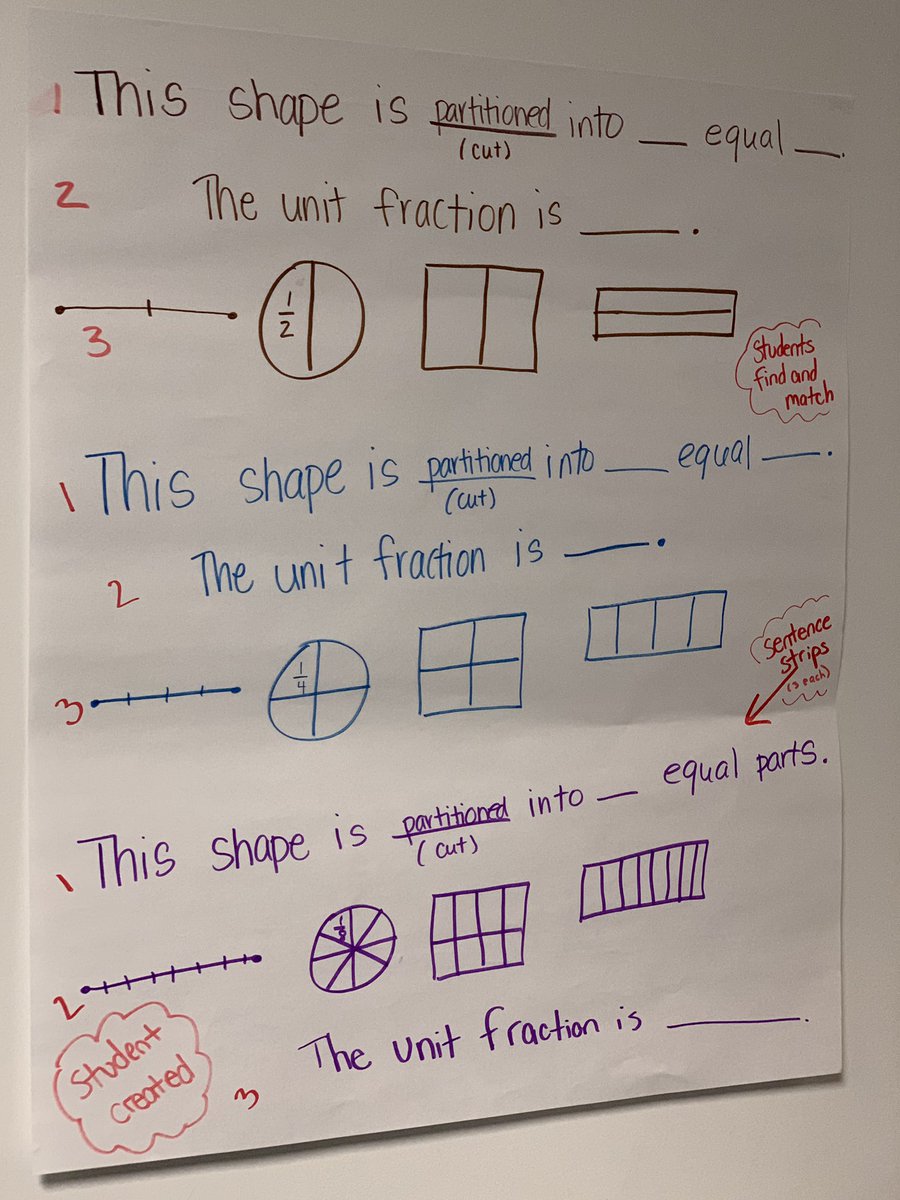 1 This shape is partitioned into __ equal __.
(cut)
2 The unit fraction is ____.
1/2
3
Students
find and
match
1 This shape is partitioned into ___ equal ___.
(cut)
2 The unit fraction is ___.
1/4
3
Sentence
strips
(3 each)
1 This shape is partitioned into __ equal parts.
(cut)
1/8
2
Student
created
3 The unit fraction is ______.